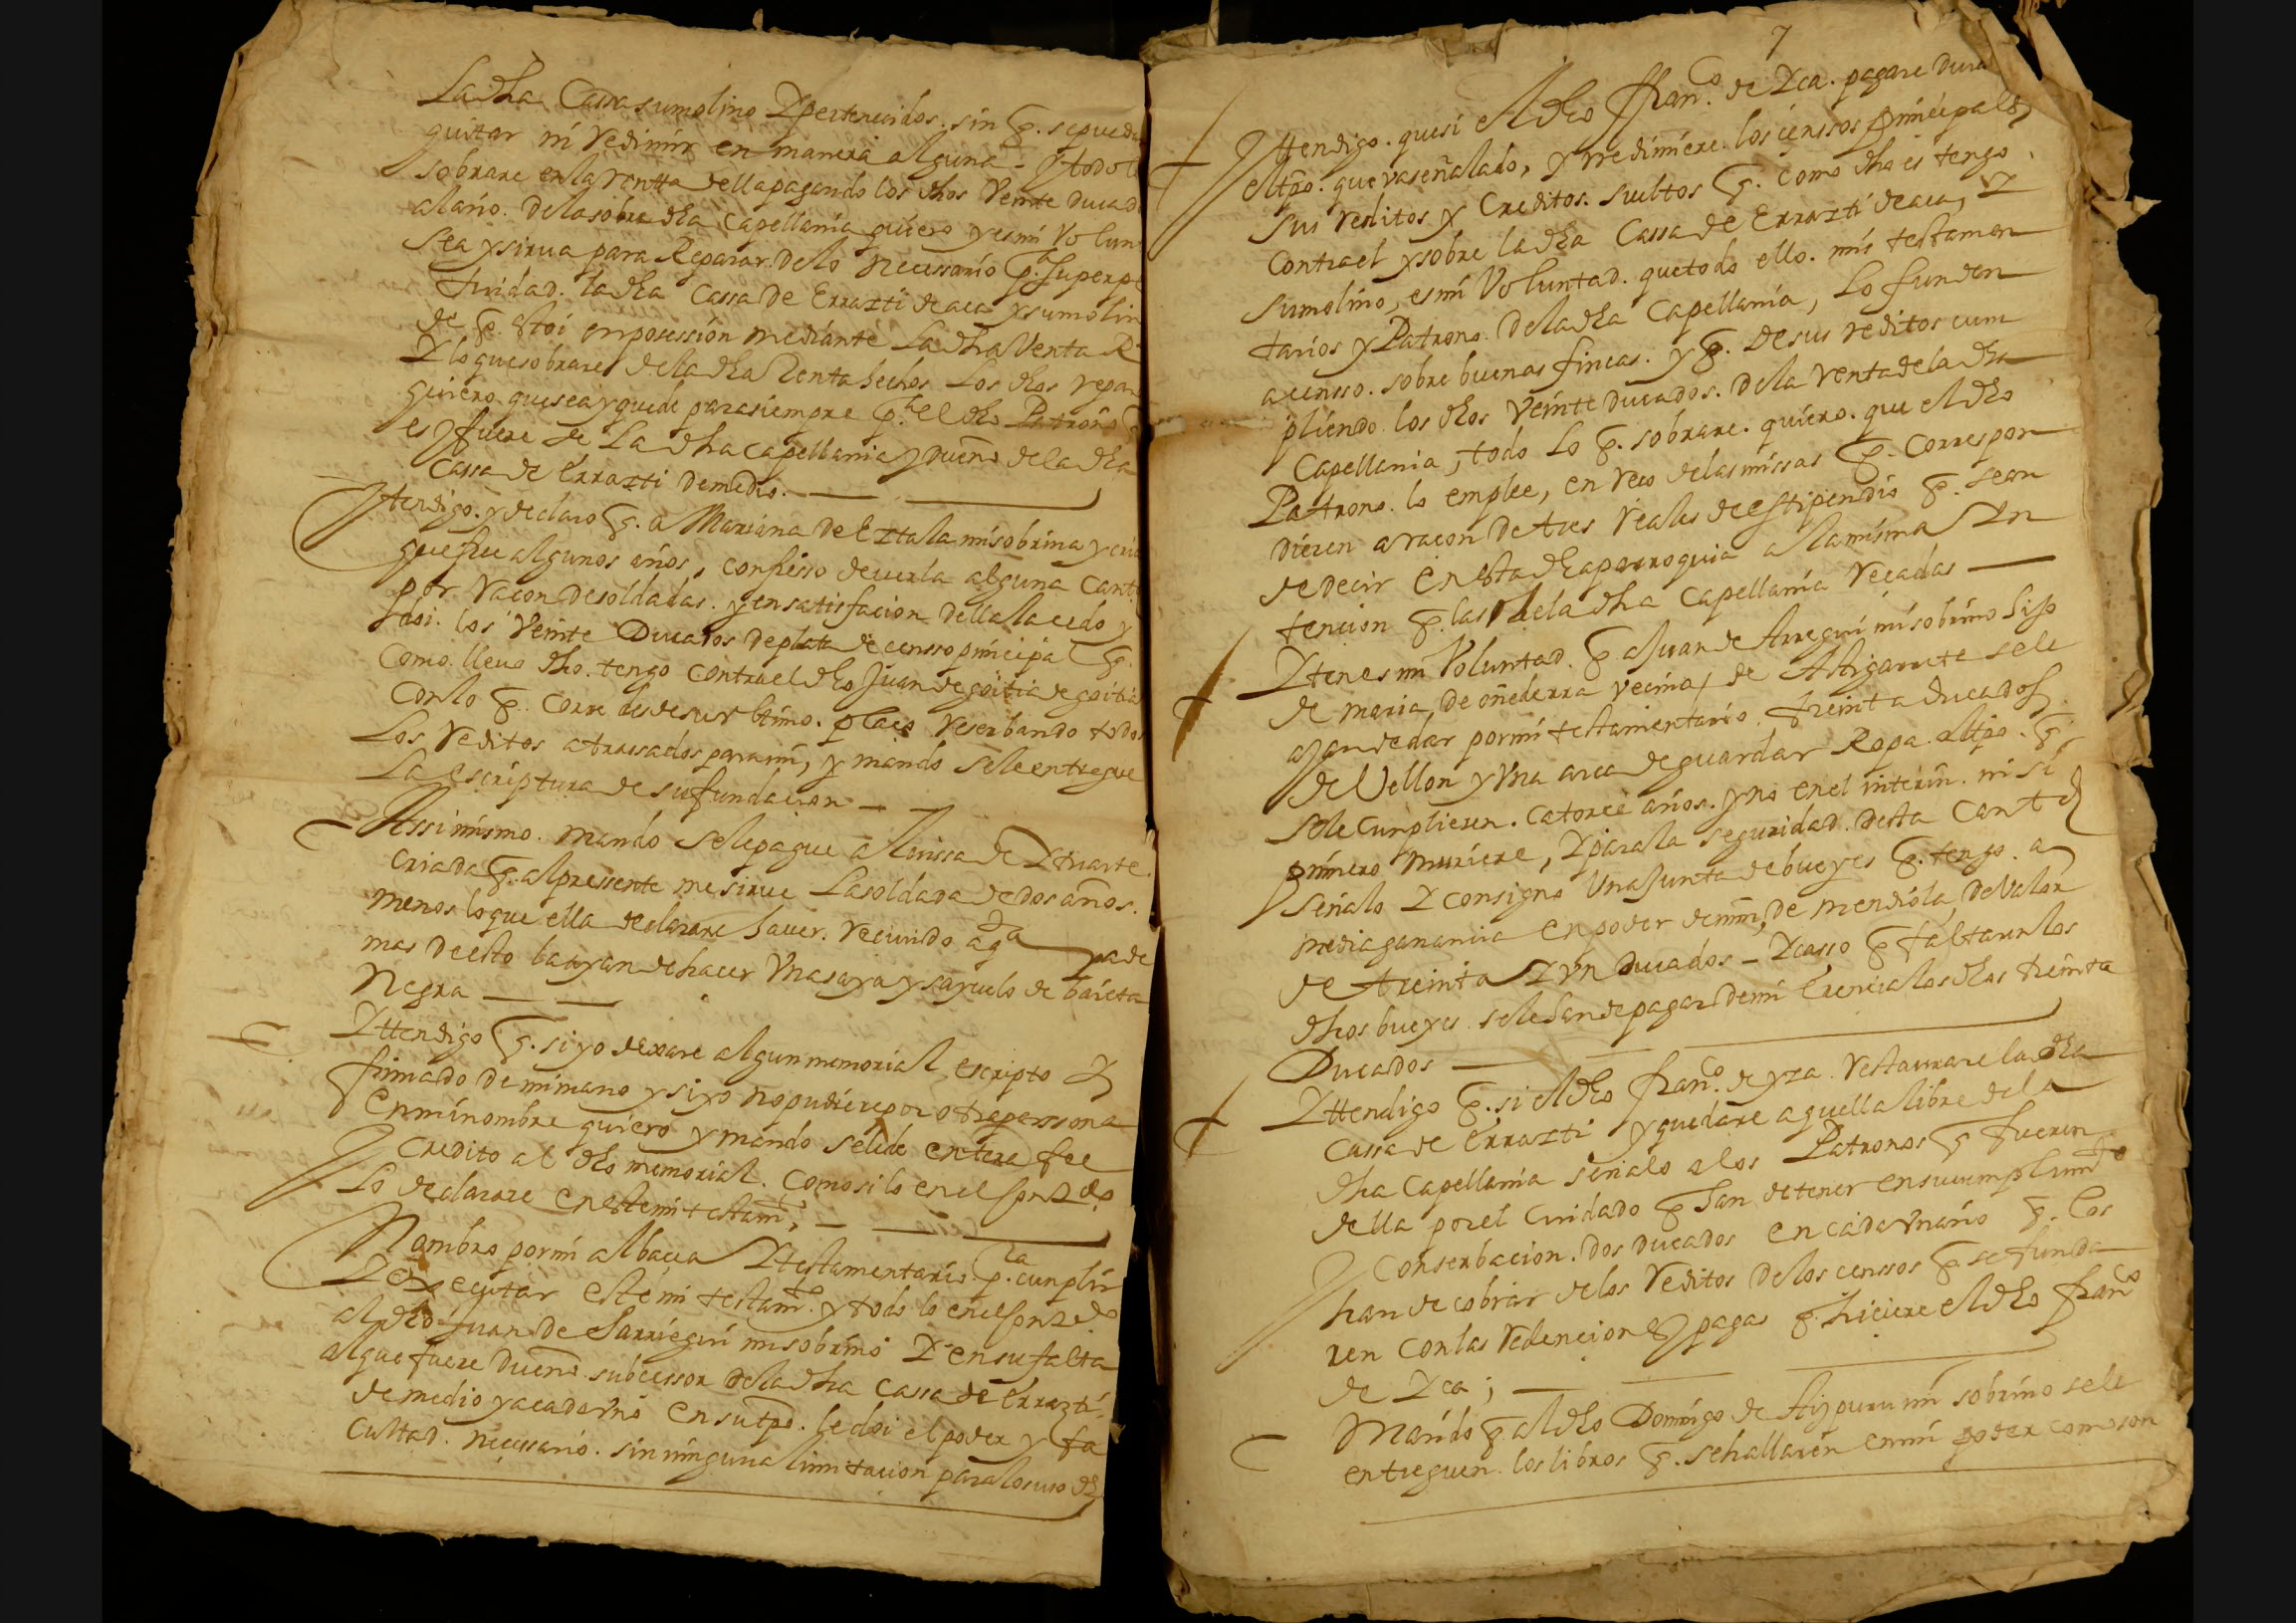 La dha Cassa su molino Y pertenecidos. sin q. se pueda
quitar ni Redimir en manera alguna - y todo lo
sobrare en la rentta della pagando los dhos Veinte ducad
al año. de la sobre dha Capellanía quiero y es mi Volun
sea y sirua para Reparar de lo necessario pa. su perpe
tuidad. la dha Cassa de Errazti de aca y su molin
de q. estoi en posession mediante La dha Venta R
Y lo que sobrare de la dha Renta hechos Los dhos repar
quiero que sea y quede para siempre pa. el dho Patrono q
es y fuere de La dha capellania y dueño de la dha
Cassa de Errazti de medio.
Yten digo. y declaro q. a Mariana de Eztala mi sobrina y cria
que fue algunos años, confiesso deuerla alguna Cant
por racon de soldadas. y en satisfacion della la cedo y
doi. los Veinte Ducados de plata de censso principa q.
Como lleuo dho. tengo contra el dho Juan de goitia de goitia
con lo q. corre desde su vltimo. placo reserbando todos
Los reditos atrassados para mi, y mando se le entregue
La escriptura de su fundacion
Assi mismo. mando se le pague a Luissa de Yriarte.
criada q. al pressente me sirue La soldada de dos años.
menos lo que ella declarare hauer. recuido a qta y a de
mas de esto la ayan de hacer Vna saya y sayuelo de baieta
Negra
Ytten digo q. si yo dexare algun memorial escripto y
firmado de mi mano y si yo no pudiere por otra perssona
en mi nombre quiero y mando se le de entera fee
y Credito al dho memorial. como si lo en el contdo.
Lo declarare en este mi testamto.
Nombro por mi albacea Y testamentario. pa. cunplir
Y executar este mi testamto. y todo lo en el contdo
al dho Juan de Larriegui mi sobrino Y en su falta
al que fuere Dueño subcessor de la dha Cassa de Errazti.
de medio y a cada vno en su tpo. le doi el poder y fa
cultad. necessario. sin ninguna limitacion para los uso dho
7
Ytten digo. que si el dho Franco. de Yca. pagare dura
el tpo. que va señalado, y redimiere los censsos principales
sus reditos y creditos. sueltos q. como dho es tengo
contra el y sobre la dha Cassa de Errazti de aca, Y
su molino, es mi Voluntad. que todo ello. mis testamen
tarios y Patrono de la dha Capellania, Lo funden
a censso. sobre buenas fincas. y q. de sus reditos cum
pliendo los dhos Veinte ducados. de la renta de la dha
Capellania, todo Lo q. sobrare. quiero. que el dho
Patrono. lo emplee, en reco de las missas q. correspon
dieren a racon de tres reales de estipendio q. sean
de decir en esta dha parroquia a la misma Yn
tencion q. las de la dha Capellanía recadas
Yten es mi Voluntad. q. a Juan de Arregui mi sobrino hijo
de maria de oñederra vecina de Astigarreta se le
ayan de dar por mi testamentario. treinta ducados
de Vellon y Vna arca de guardar Ropa. al tpo. q.
se le cunplieren. catorce años. y no en el interin. ni si
primero muriere, Y para la seguridad. desta cantd
señalo Y consigno Vna Junta de bueyes q. tengo. a
media ganancia en poder de mn. de mendiola, de Valor
de treinta Y Vn ducados - Y casso q faltaren los
dhos bueyes. se le han de pagar de mi erencia los dhos treinta
Ducados
Ytten digo q. si el dho franco. de yza. restaurare la dha
Cassa de Errazti y quedare aquella libre de la
dha Capellania señalo a los Patronos q fueren
della por el cuidado q han de tener en su cumplimto
y conserbacion. dos ducados en cada vn año q. los
han de cobrar de los reditos de los censsos q se funda
ren con las redenciones y pagas q. hiciere el dho franco
de Yca;
Mando q. al dho Domingo de Aizpuru mi sobrino se le
entreguen. los libros q. se hallaren en mi poder como son